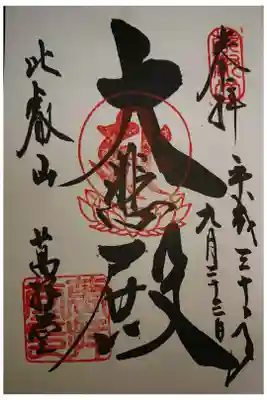 奉拝 平成三十年
九月二十三日
大悲殿
比叡山 萬拝堂